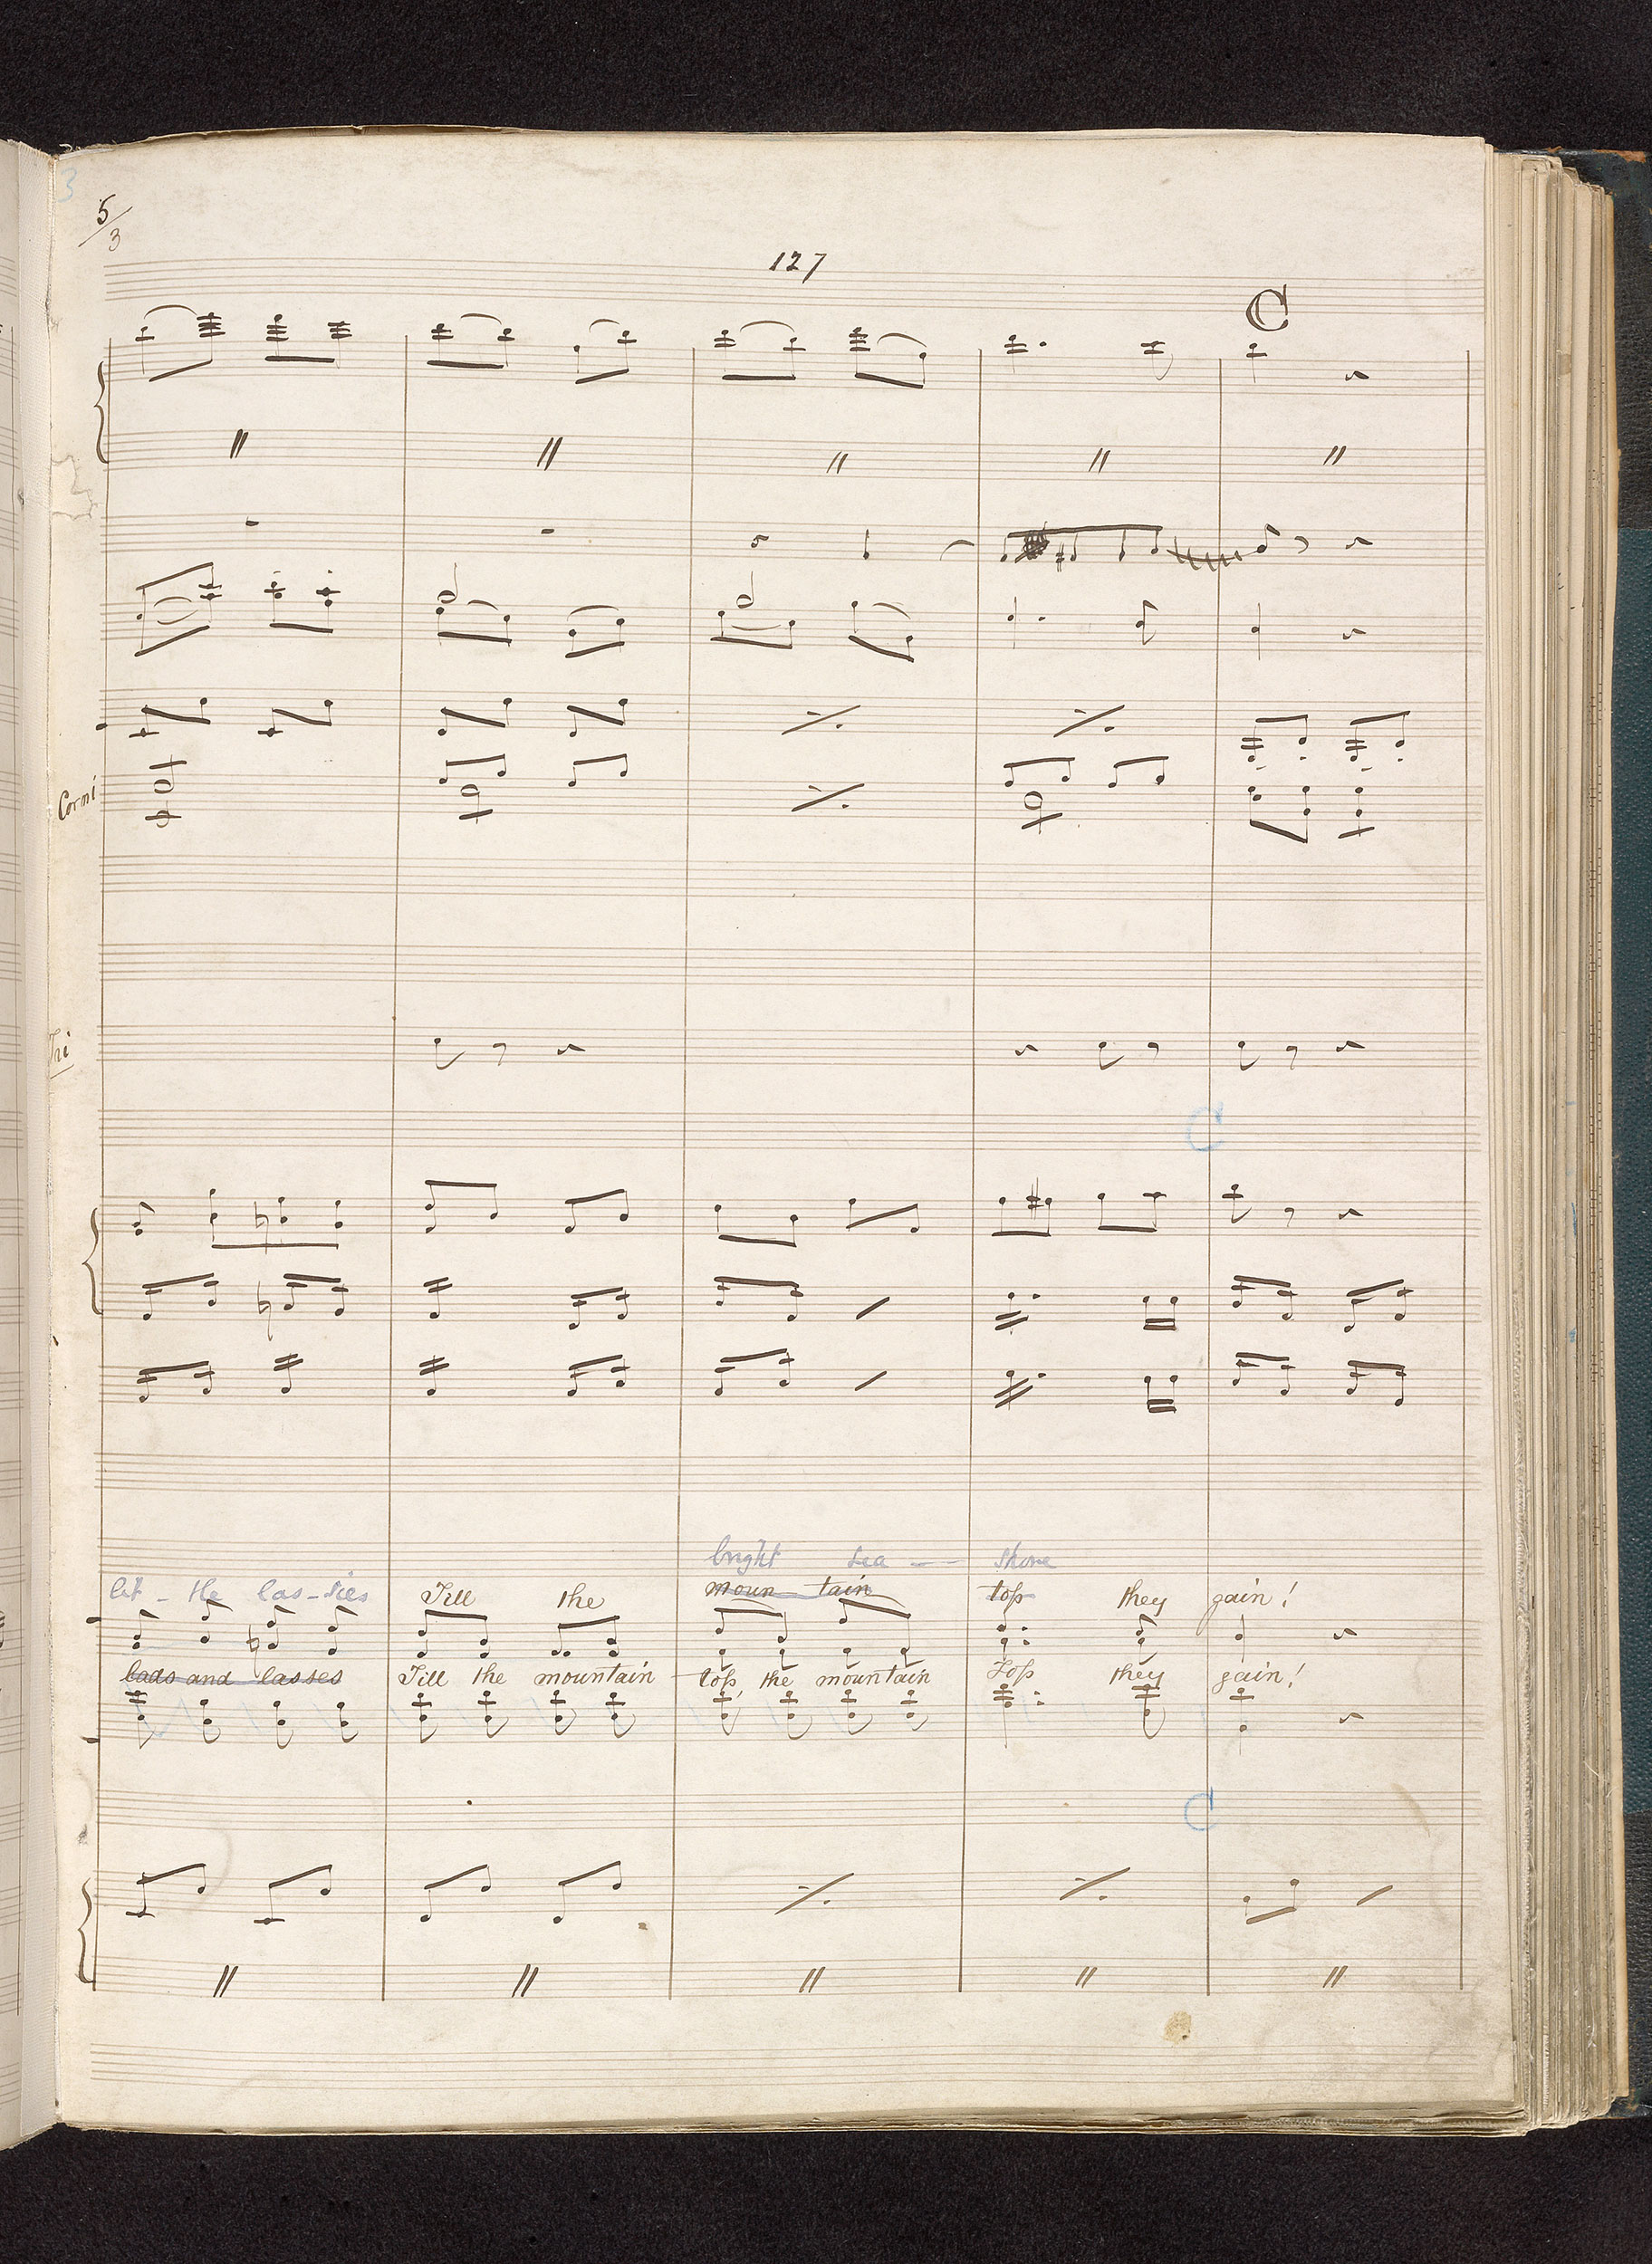 3
5/3
127
C
Corni
Tri
C
bright sea - - shore
let - the las - sies Till the moun - tain top they gain!
lads and lasses Till the mountain top, the mountain Top they gain!
C